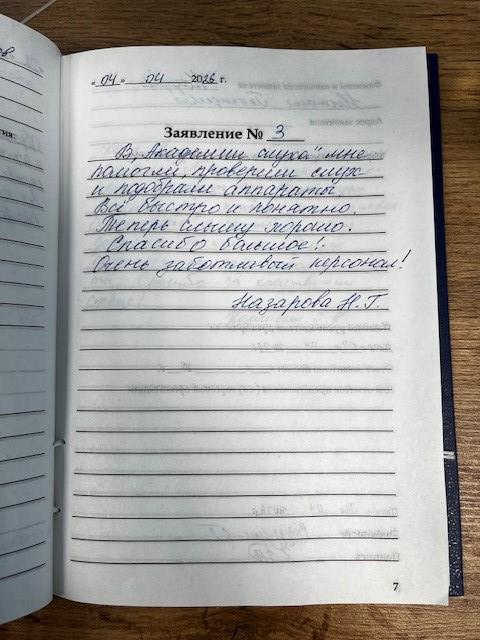 « 04 » 04 2026 г.
Заявление № 3
В „Академии слуха" мне
помогли, проверили слух
и подобрали аппараты
Всё быстро и понятно.
Теперь слышу хорошо.
Спасибо большое!
Очень заботливый персонал!
Назарова Н.Г.
7